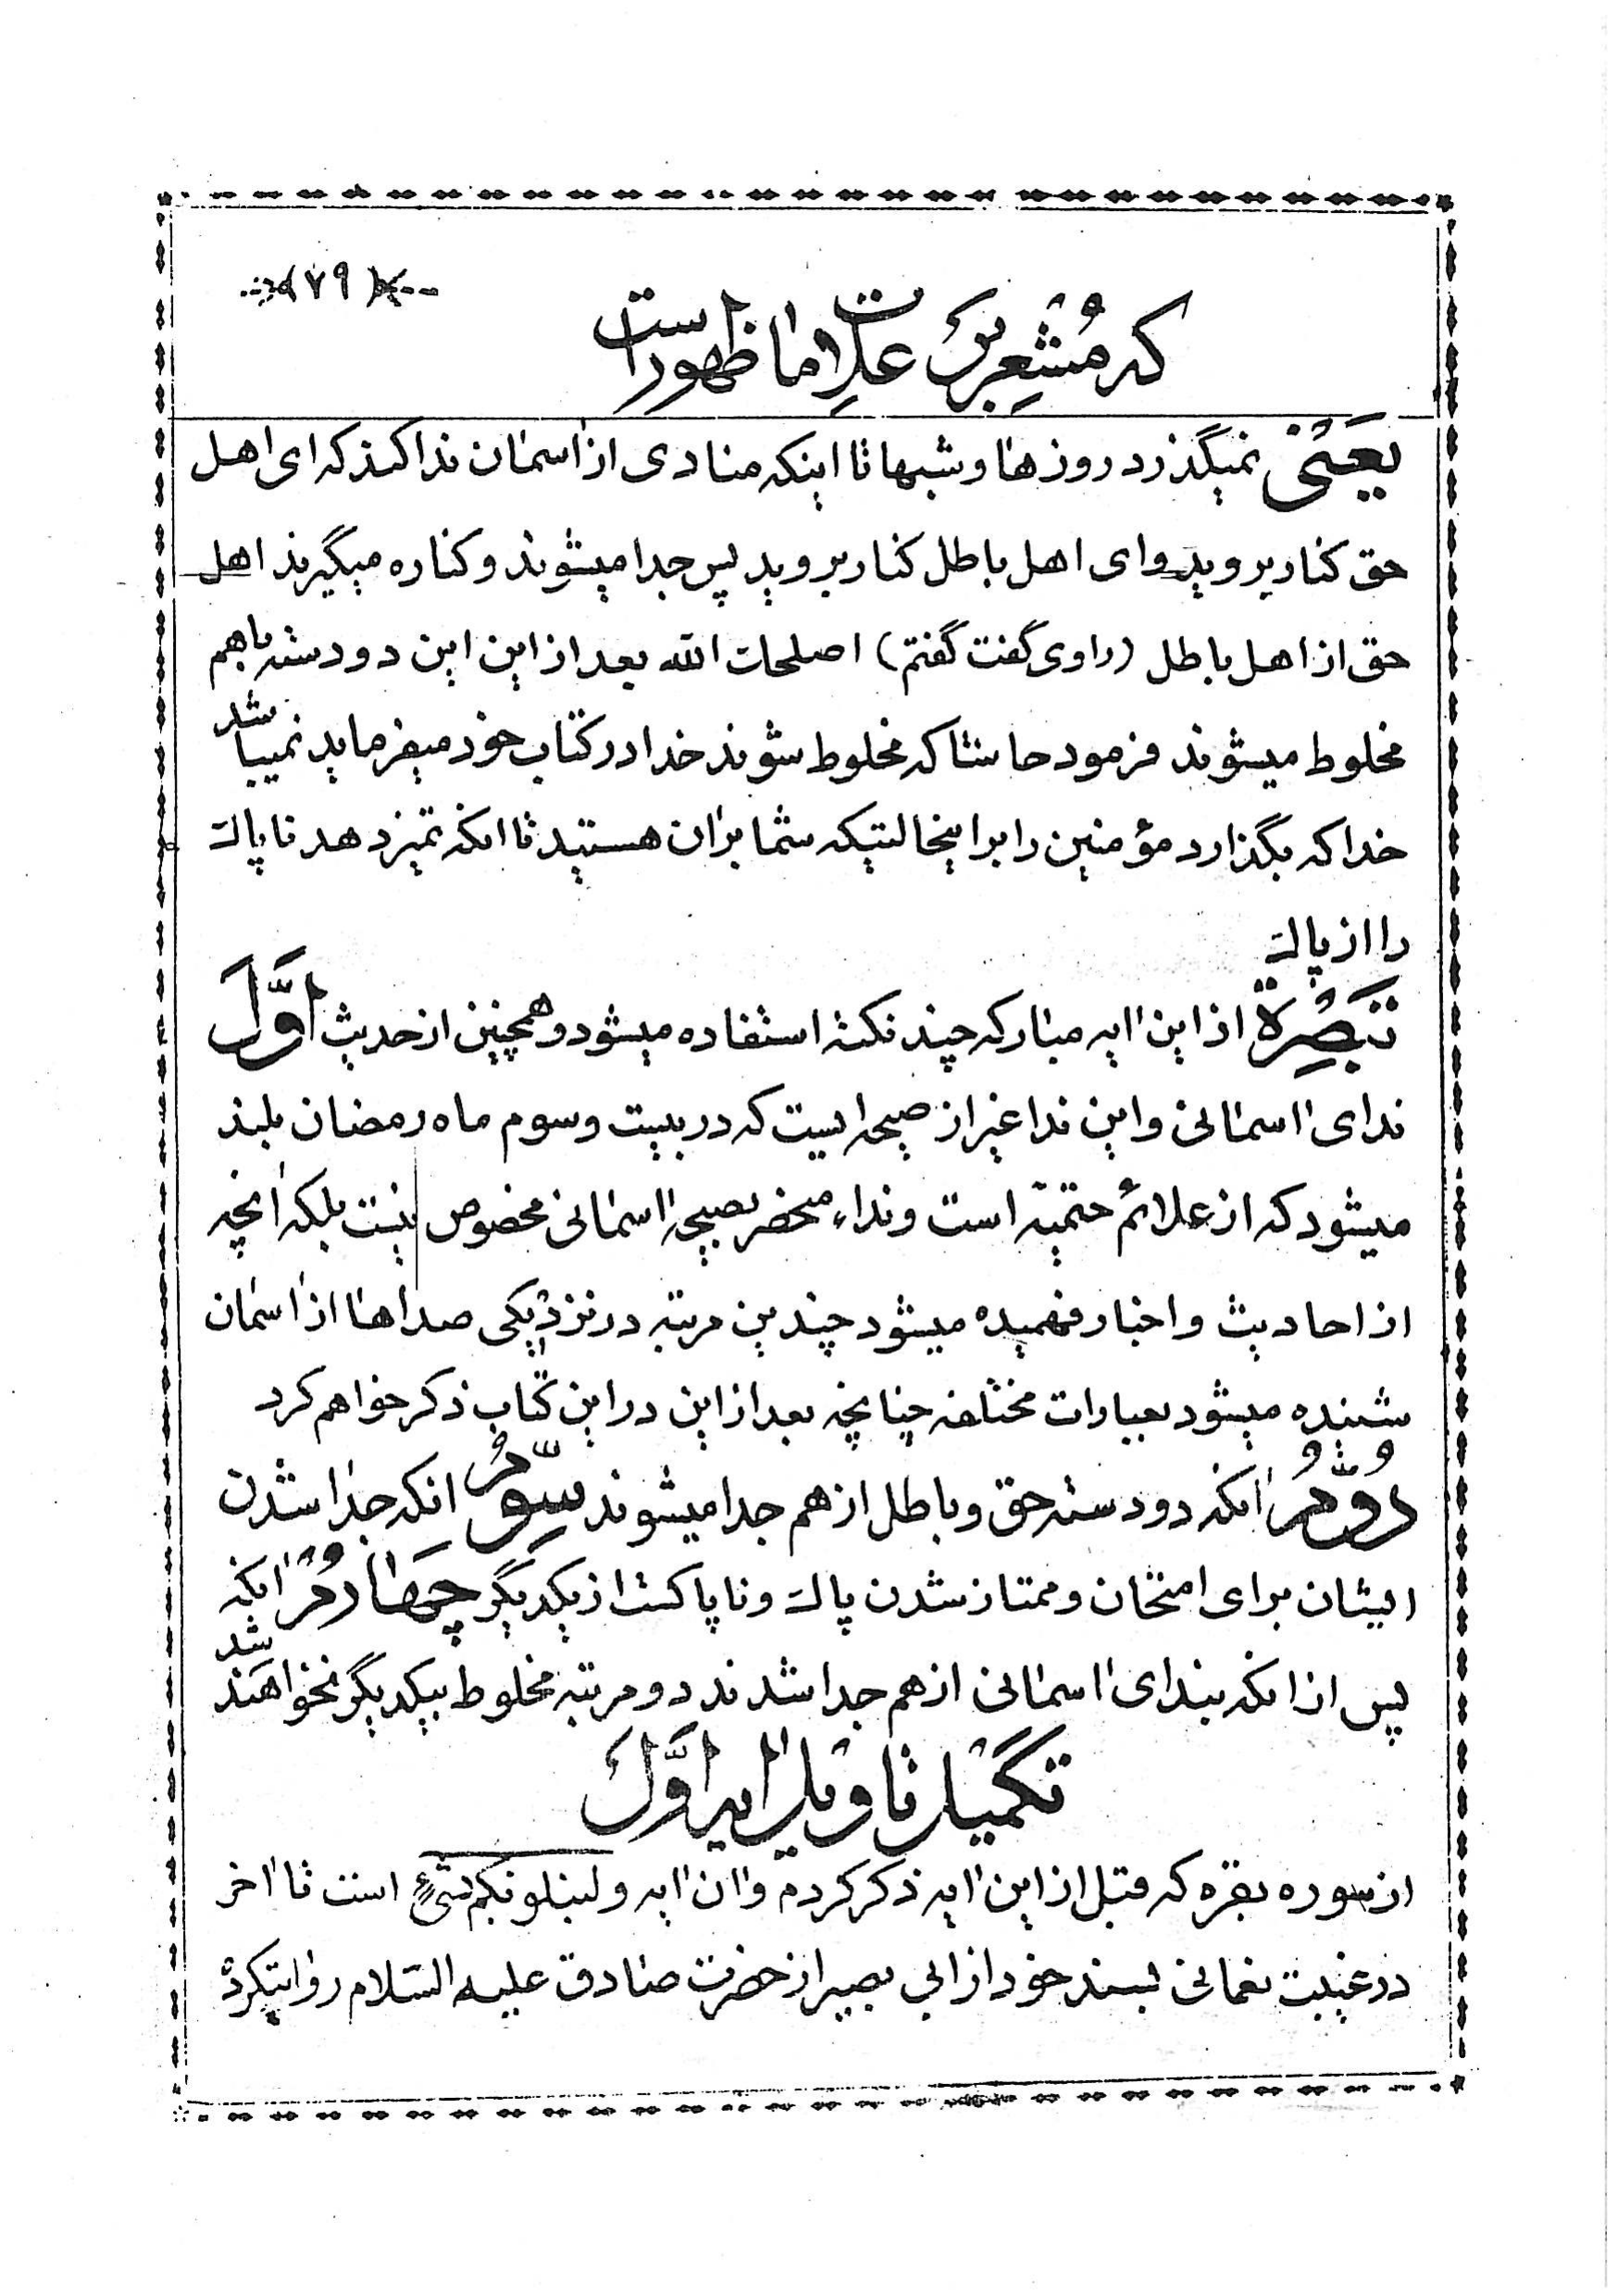 ﴿۷۹﴾
که مُشعِر بر علامات ظهور است
یَعنی نمیگذرد روزها و شبها تا اینکه منادی از اسمان ندا کند که ای اهل
حق کنار بروید وای اهل باطل کنار بروید پس جدا میشوند و کناره میگیرند اهل
حق از اهل باطل (راوی گفت گفتم) اصلحک الله بعد از این این دو دسته باهم
مخلوط میشوند فرمود حاشا که مخلوط شوند خدا در کتاب خود میفرماید نمیباشد
خدا که بگذارد مؤمنین را بر اینحالتیکه شما بران هستید تا انکه تمیز دهد ناپاک
را از پاک
تَبصِرَة از این ایه مبارکه چند نکته استفاده میشود و همچنین از حدیث اَوَّل
ندای اسمانی و این ندا غیر از صیحه ایست که در بیست و سوم ماه رمضان بلند
میشود که از علائم حتمیه است و نداء منحصر بصیحه اسمانی مخصوص نیست بلکه انچه
از احادیث و اخبار فهمیده میشود چندین مرتبه در نزدیکی صداها از اسمان
شنیده میشود بعبارات مختلفه چنانچه بعد از این در این کتاب ذکر خواهم کرد
دُوُّم انکه دو دسته حق و باطل از هم جدا میشوند سِوُّم انکه جدا شدن
ایشان برای امتحان و ممتاز شدن پاک و ناپاکست از یکدیگر چَهارُم اینکه
پس از انکه بندای اسمانی از هم جدا شدند دو مرتبه مخلوط بیکدیگر نخواهند شد
تکمیل تاویل ایه اَوَّل
از سوره بقره که قبل از این ایه ذکر کردم و ان ایه ولنبلونکم بشیءٍ است تا اخر
در غیبت نعمانی بسند خود از ابی بصیر از حضرت صادق علیه السّلام روایتکرده